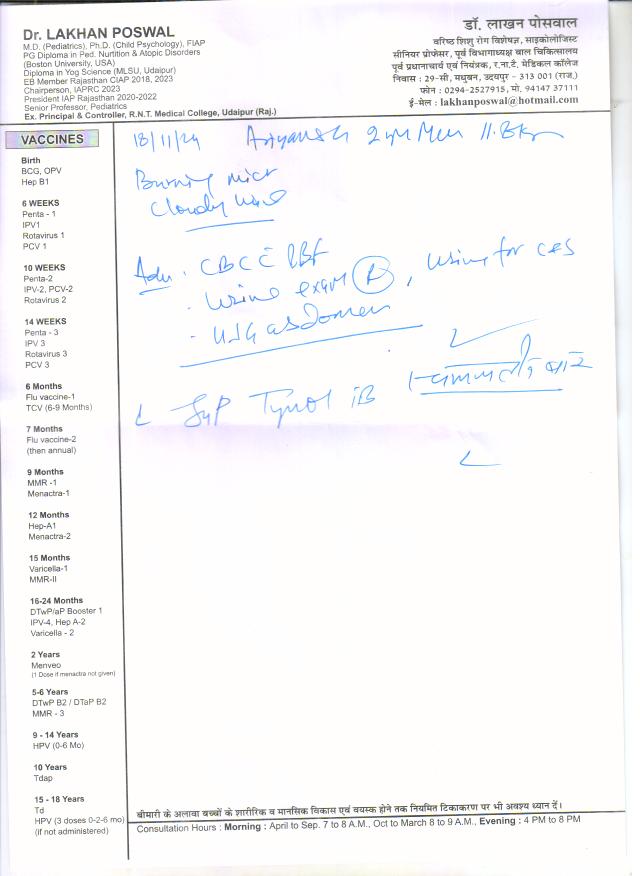 Dr. LAKHAN POSWAL
M.D. (Pediatrics), Ph.D. (Child Psychology), FIAP
PG Diploma in Ped. Nurtition & Atopic Disorders
(Boston University, USA)
Diploma in Yog Science (MLSU, Udaipur)
EB Member Rajasthan CIAP 2018, 2023
Chairperson, IAPRC 2023
President IAP Rajasthan 2020-2022
Senior Professor, Pediatrics
Ex. Principal & Controller, R.N.T. Medical College, Udaipur (Raj.)
डॉ. लाखन पोसवाल
वरिष्ठ शिशु रोग विशेषज्ञ, साइकोलोजिस्ट
सीनियर प्रोफेसर, पूर्व विभागाध्यक्ष बाल चिकित्सालय
पूर्व प्रधानाचार्य एवं नियंत्रक, र.ना.टै. मेडिकल कॉलेज
निवास : 29-सी, मधुबन, उदयपुर - 313 001 (राज.)
फोन : 0294-2527915, मो. 94147 37111
ई-मेल : lakhanposwal@hotmail.com
VACCINES
Birth
BCG, OPV
Hep B1
6 WEEKS
Penta - 1
IPV1
Rotavirus 1
PCV 1
10 WEEKS
Penta-2
IPV-2, PCV-2
Rotavirus 2
14 WEEKS
Penta - 3
IPV 3
Rotavirus 3
PCV 3
6 Months
Flu vaccine-1
TCV (6-9 Months)
7 Months
Flu vaccine-2
(then annual)
9 Months
MMR -1
Menactra-1
12 Months
Hep-A1
Menactra-2
15 Months
Varicella-1
MMR-II
16-24 Months
DTwP/aP Booster 1
IPV-4, Hep A-2
Varicella - 2
2 Years
Menveo
(1 Dose if menactra not given)
5-6 Years
DTwP B2 / DTaP B2
MMR - 3
9 - 14 Years
HPV (0-6 Mo)
10 Years
Tdap
15 - 18 Years
Td
HPV (3 doses 0-2-6 mo)
(if not administered)
18/11/24 Aryansh
Burning mict
Cloudy urine
Adv. CBC
- urine exam (R), urine for c&s
- USG abdomen
Syp
बीमारी के अलावा बच्चों के शारीरिक व मानसिक विकास एवं वयस्क होने तक नियमित टिकाकरण पर भी अवश्य ध्यान दें।
Consultation Hours : Morning : April to Sep. 7 to 8 A.M., Oct to March 8 to 9 A.M., Evening : 4 PM to 8 PM